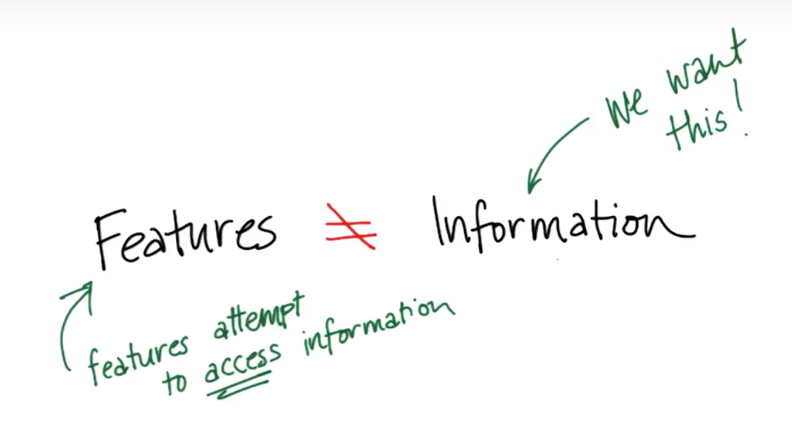 we want
this!
Features ≠ Information
features attempt
to access information